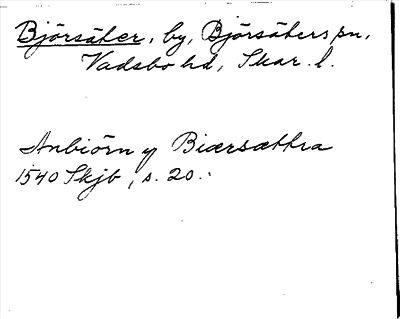 Björsäter, by, Björsäters sn,
Vadsbo hd, Skar. l.
Anbiörn y Biærsættra
1540 Skjb, s. 20.